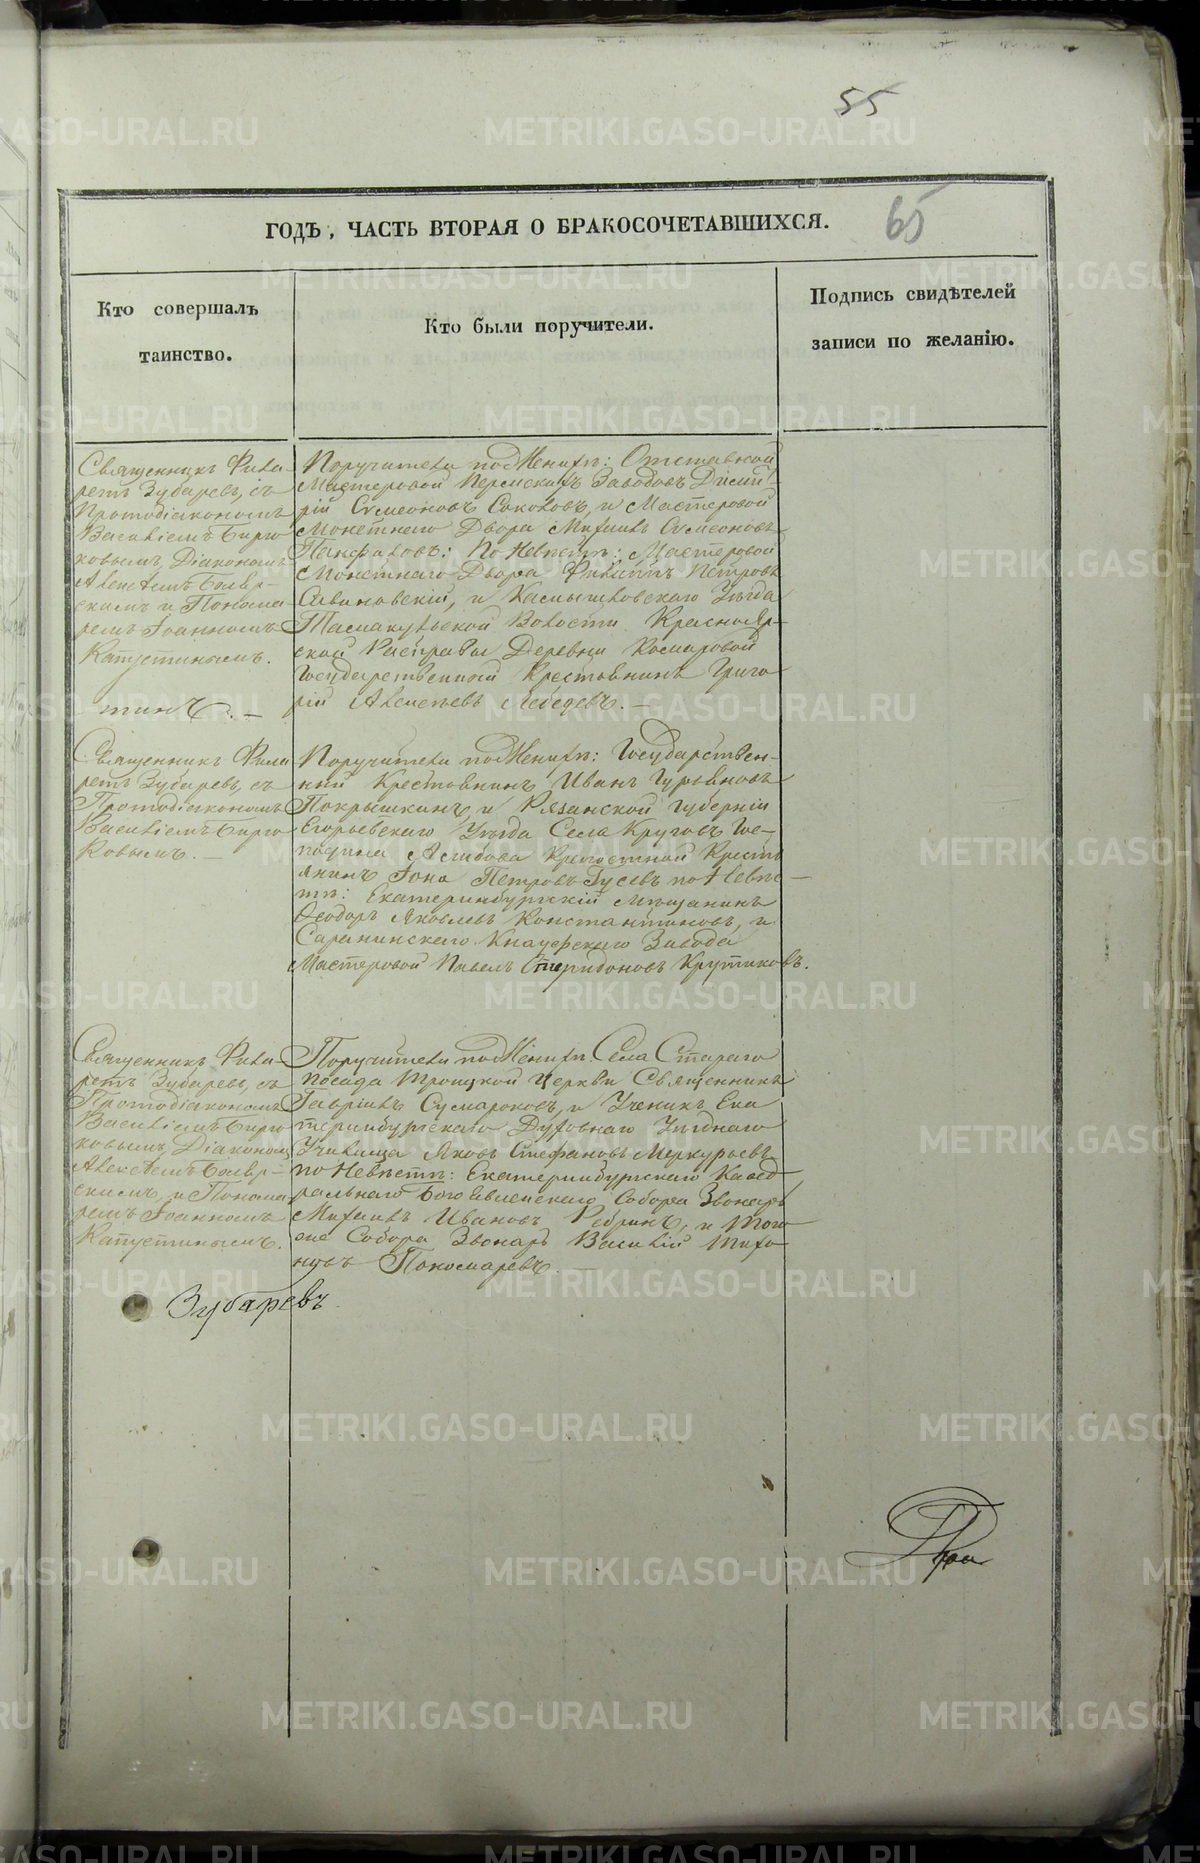 55
65
ГОДЪ, ЧАСТЬ ВТОРАЯ О БРАКОСОЧЕТАВШИХСЯ.
Кто совершалъ
таинство.
Кто были поручители.
Подпись свидѣтелей
записи по желанію.
Священникъ Фила-
ретъ Зубаревъ, съ
Протодіакономъ
Василіемъ Бирю-
ковымъ, Діакономъ
и Понома-
ремъ Іоанномъ
Капустинымъ.
Поручители по Женихѣ: Отставной
Мастеровой Пермскихъ Заводовъ Дмит-
рій Сѵмеоновъ Соколовъ, и Мастеровой
Монетнаго Двора Михаилъ Сѵмеоновъ
Панфиловъ: По Невѣстѣ: Мастеровой
Монетнаго Двора Филиппъ Петровъ
Савиновскій, и Камышловскаго Уѣзда
Тамакульской Волости Краснояр-
ской Расправы Деревни Комаровой
Государственный Крестьянинъ Григо-
рій Алексѣевъ Лебедевъ. —
Священникъ Фила-
ретъ Зубаревъ, съ
Протодіакономъ
Василіемъ Бирю-
ковымъ. —
Поручители по Женихѣ: Государствен-
ный Крестьянинъ Иванъ Гурьяновъ
Покрышкинъ, и Рязанской Губерніи
Егорьевскаго Уѣзда Села Круговъ Гос-
подина Крепостной Кресть
янинъ Іона Петровъ Гусевъ по Невѣс-
тѣ: Екатеринбургскій Мѣщанинъ
Ѳеодоръ Яковлевъ Константиновъ, и
Саранинскаго Кнауфскаго Завода
Мастеровой Павелъ Спиридоновъ Крутиковъ.
Священникъ Фила-
ретъ Зубаревъ, съ
Протодіакономъ
Василіемъ Бирю-
ковымъ, Діакономъ
и Понома
ремъ Іоанномъ
Капустинымъ.
Поручители по Женихѣ: Села Стараго
Посада Троицкой Церкви Священникъ
Гавріилъ Сумароковъ, и Ученикъ Ека
теринбургскаго Духовнаго Уѣзднаго
Училища Яковъ Стефановъ Меркурьевъ
по Невѣстѣ: Екатеринбургскаго Каѳед
ральнаго Богоявленскаго Собора Звонарь
Михаилъ Ивановъ Ребринъ, и Того
же Собора Звонарь Василій Тихо
новъ Пономаревъ. —
Зубаревъ
METRIKI.GASO-URAL.RU